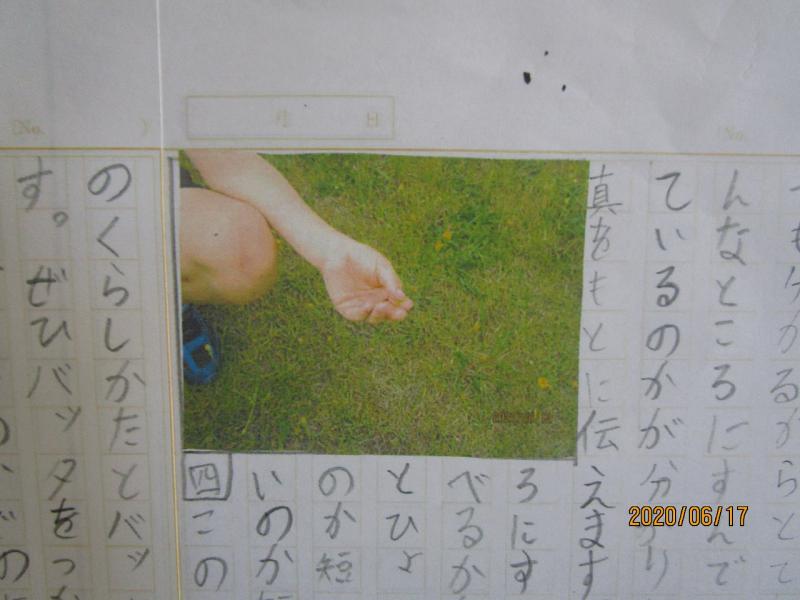 (No. )
月 日
(No.
も分かるからとて
んなところにすんで
ているのかが分かり
真をもとに伝えます
ろにす
べるか
とひょ
のか短
いのか
四この
のくらしかたとバッ
す。ぜひバッタをつか
2020/06/17